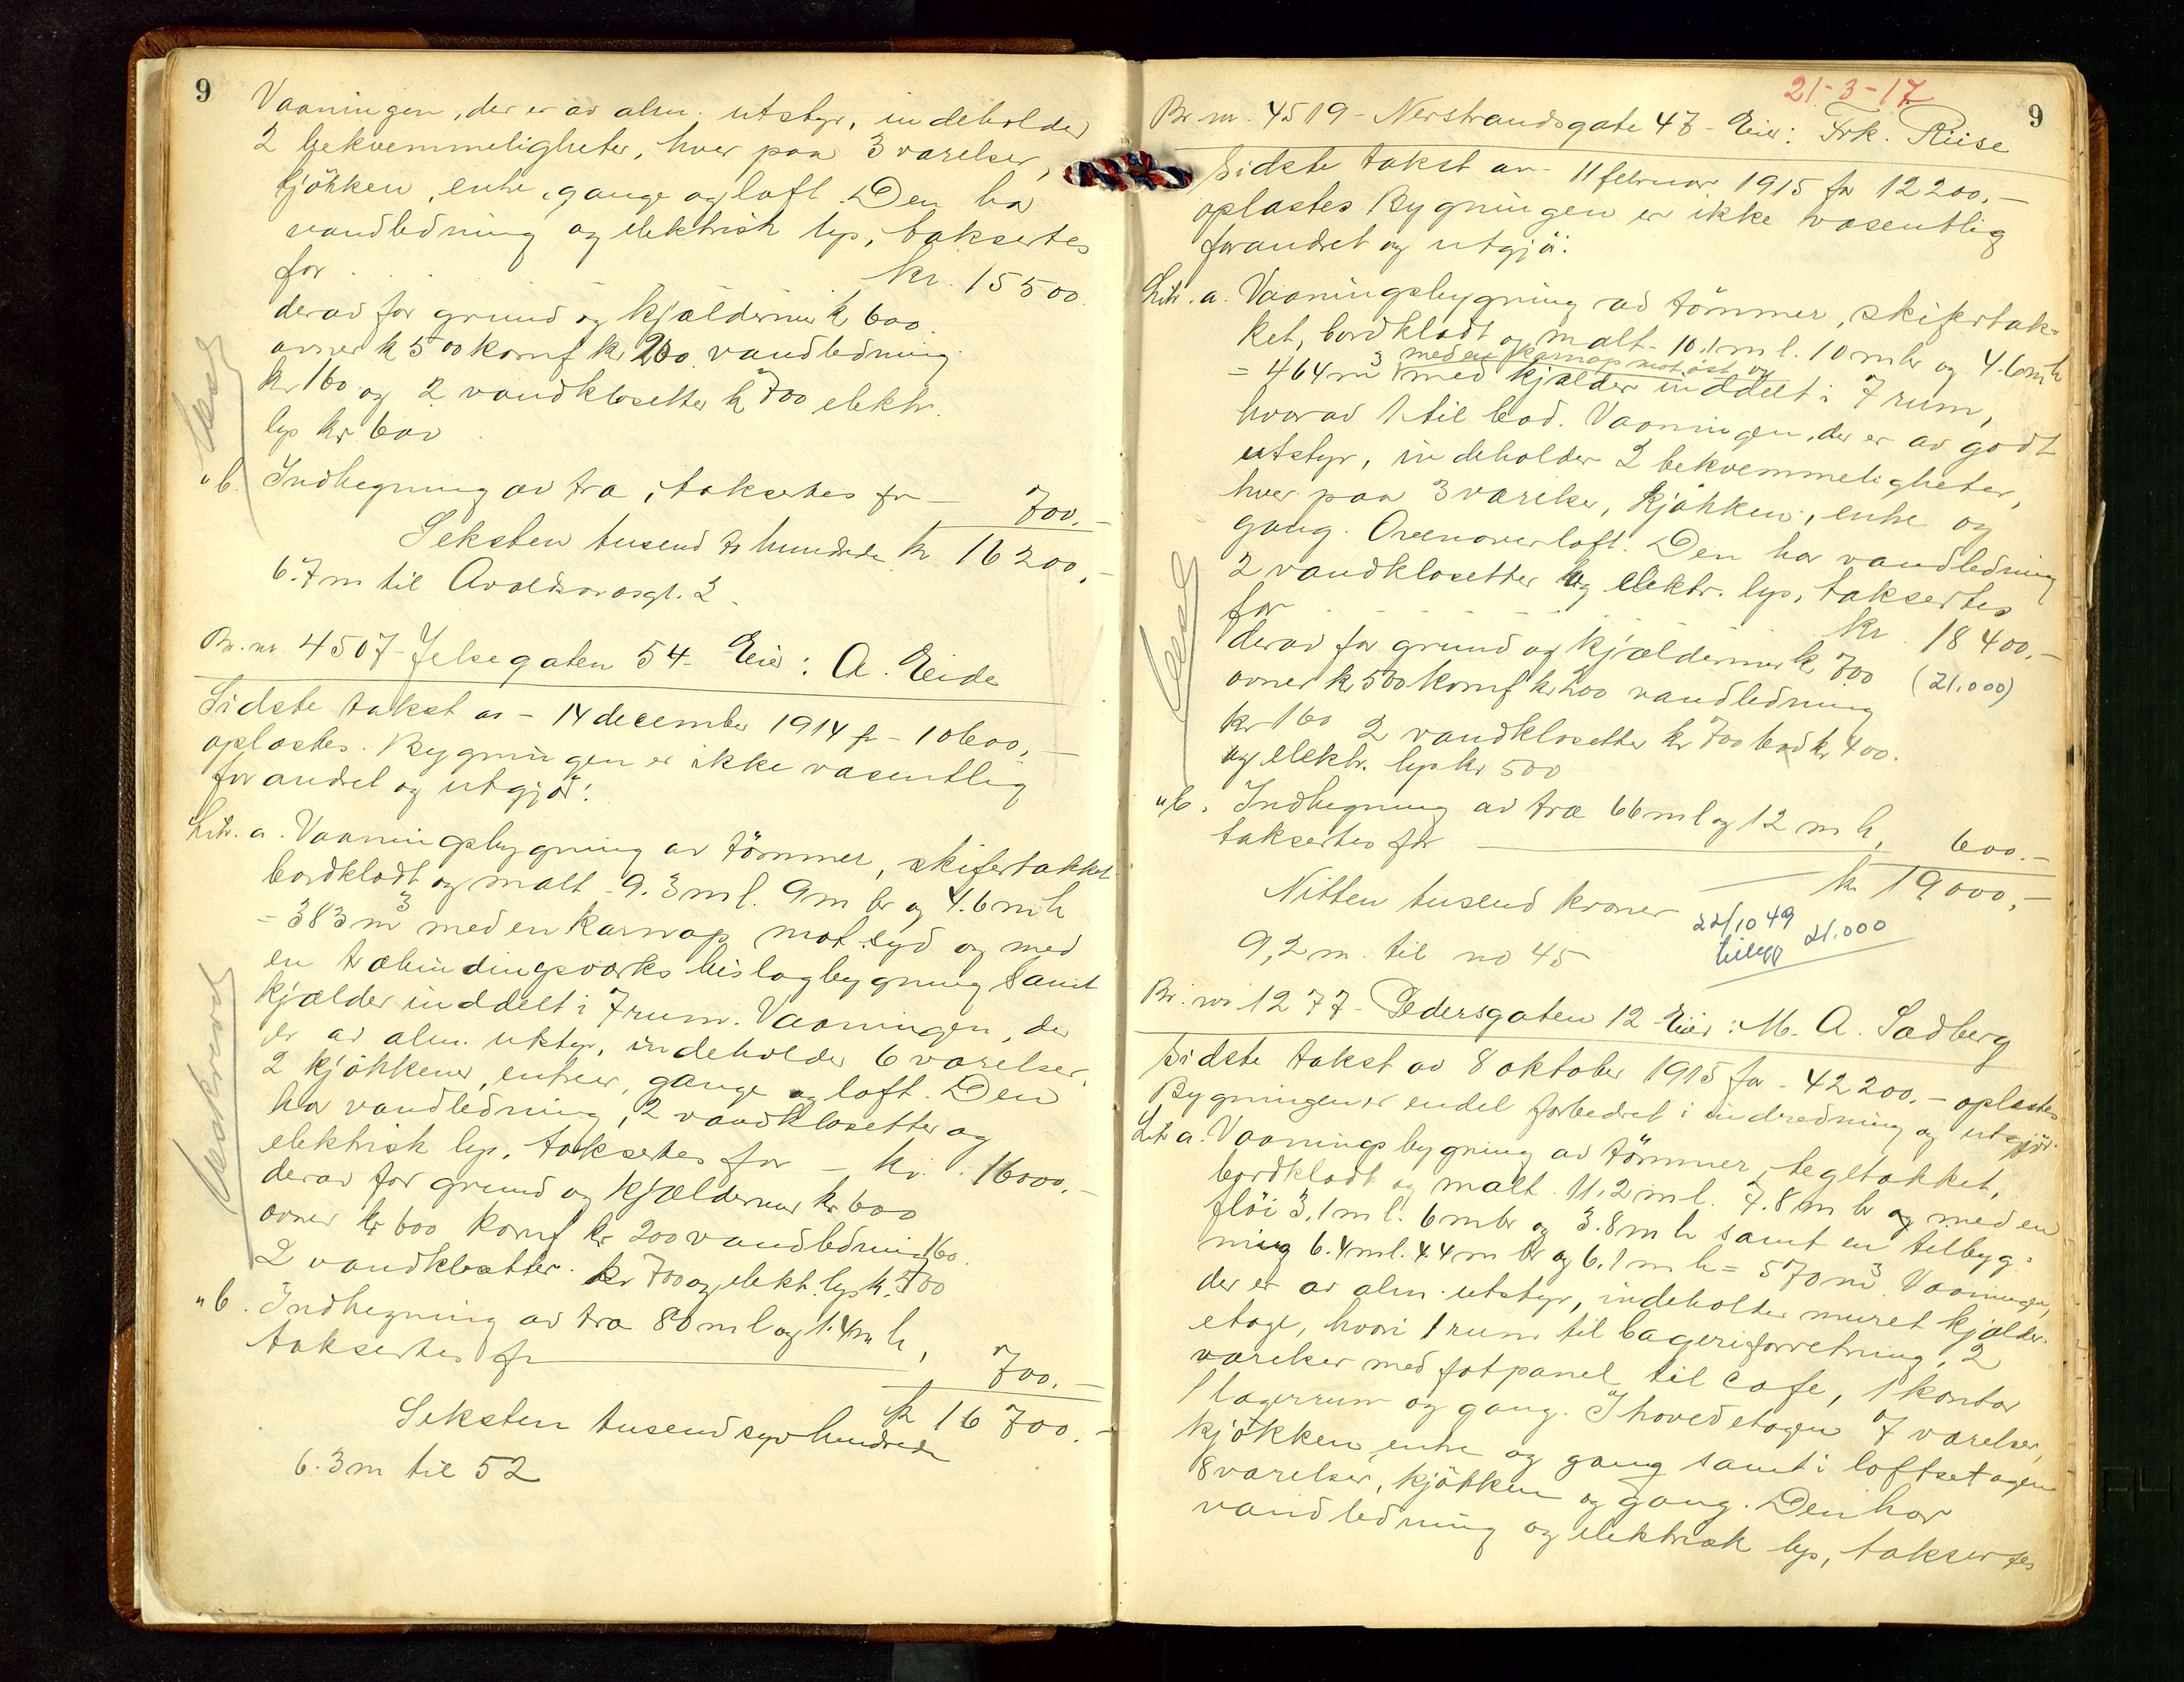 9
Vaaningen, der er av alm. utstyr, indeholder
2 bekvemmeligheter, hver paa 3 værelser,
kjökken, entre, gange og loft. Den har
vandledning og elektrisk lys, taksertes
for . . . kr. 15500.
derav for grund og kjældermur k 600.
ovner k 500 komf kr 200 vandledning
kr 160 og 2 vandklosetter k 700 elektr.
lys kr 600
" b. Indhegning av træ, taksertes for — 700.-
Seksten tusend to hundrede kr 16200,-
6.7m til Avaldsnesgt. 2.
Br. nr. 4507 - Jelsegaten 54 - Eier: A. Eide
Sidste takst av - 14 december 1914 for - 10600,-
oplæstes. Bygningen er ikke væsentlig
forandret og utgjör:
Litr. a. Vaaningsbygning av tömmer, skifertækket
bordklædt og malt - 9.3 m l. 9 m br og 4.6 m h
= 383 m³ med en karnap mot syd og med
en træbindingsverks bislagbygning samt
kjælder inddelt i 7 rum. Vaaningen, der
er av alm. utstyr, indeholder 6 værelser,
2 kjökkener, entreer, gange og loft. Den
har vandledning, 2 vandklosetter og
elektrisk lys, taksertes for - kr. 16000.-
derav for grund og kjældermur kr 600
ovner kr 600 komf kr 200 vandledning 160.
2 vandklosetter kr 700 og elekt. lys k. 500
" b. Indhegning av træ 80 m l og 1.4 m h,
taksertes for — 700.-
kr 16700.-
Seksten tusend syv hundrede
6.3m til 52
21-3-17
9
Br. nr. 4519 - Nerstrandsgate 47 - Eier: Frk. Riise
Sidste takst av - 11 februar 1915 for 12200,-
oplæstes Bygningen er ikke væsentlig
forandret og utgjör:
Litr. a. Vaaningsbygning av tömmer, skifertæk-
ket, bordklædt og malt - 10.1 m l. 10 m br og 4.6 m h
med en karnap mot öst og
= 464 m³ med kjælder inddelt i 7 rum,
hvorav 1 til bad. Vaaningen, der er av godt
utstyr, indeholder 2 bekvemmeligheter,
hver paa 3 værelser, kjökken, entre og
gang. Ovenover loft. Den har vandledning
2 vandklosetter og elektr. lys, taksertes
for kr. 18400,-
derav for grund og kjældermur k 700 (21.000)
ovner kr 500 komf kr 200 vandledning
kr 160 2 vandklosetter kr 700 bad kr 400.
og elektr. lys kr 500
" b. Indhegning av træ 66 m l og 1.2 m h,
taksertes for — 600.-
kr 19000,-
Nitten tusend kroner
22/10 49
tillegg 21.000
9,2 m. til no 45
Br. nr 1277 - Pedersgaten 12 - Eier: M. A. Sadberg
Sidste takst av 8 oktober 1915 for - 42200.- oplæstes
Bygningen er endel forbedret i indredning og utgjör:
Litr a. Vaaningsbygning av tömmer, tegltækket,
bordklædt og malt 11,2 m l. 7.8 m br og med en
flöi 3,1 m l. 6 m br og 3.8 m h samt en tilbyg-
ning 6.4 m l. 4.4 m br og 6.1 m h = 570 m³. Vaaningen,
der er av alm. utstyr, indeholder muret kjælder-
etage, hvori 1 rum til bageriforretning, 2
værelser med fotpanel til cafe, 1 kontor
1 lagerrum og gang. I hovedetagen 7 værelser,
kjökken, entre og gang samt i loftsetagen
8 værelser, kjökken og gang. Den har
vandledning og elektrisk lys, taksertes